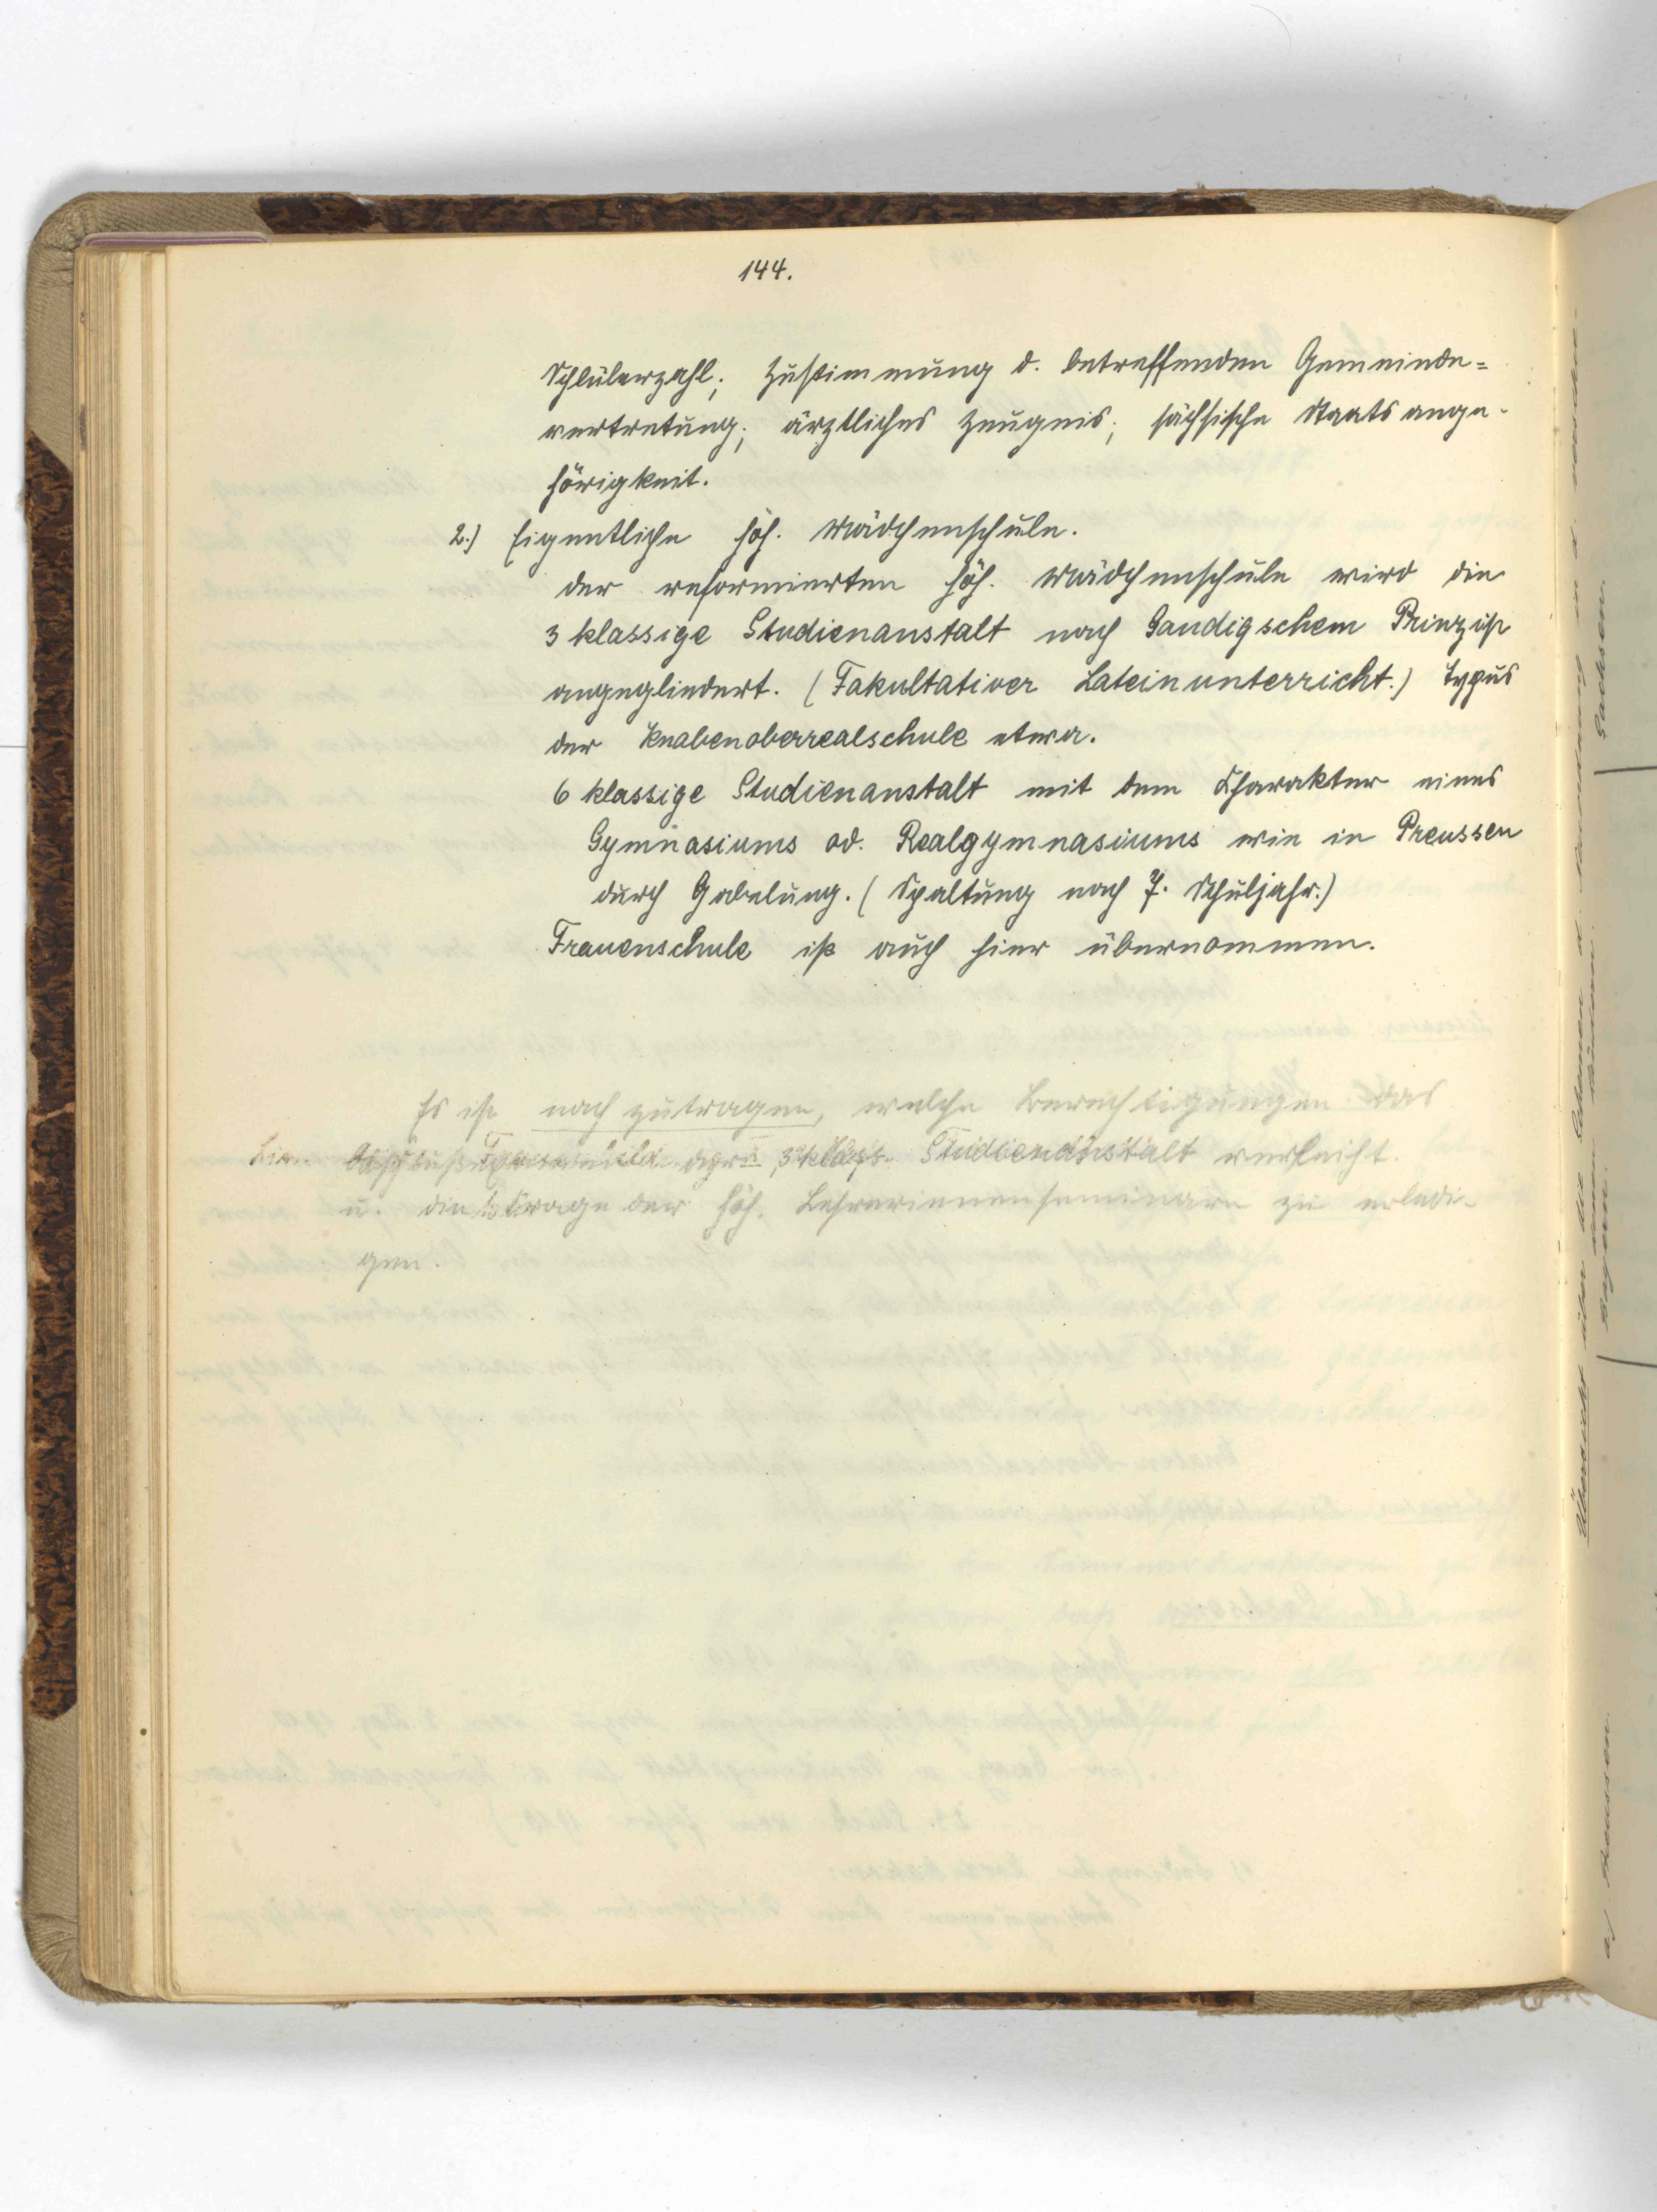 144.
Schülerzahl; Zustimmung d. betreffenden Gemeinde=
vertretung; ärztliches Zeugnis; sächsische Staatsange-
hörigkeit.
2.) Eigentliche höh. Mädchenschule.
Der reformierten höh. Mädchenschule wird die
3 klassige Studienanstalt nach Gaudigschem Prinzip
angegliedert. (Fakultativer Lateinunterricht.) Typus
der Knabenoberrealschule etwa.
6 klassige Studienanstalt mit dem Charakter eines
Gymnasiums od. Realgymnasiums wie in Preussen
durch Gabelung. (Spaltung nach 7. Schuljahr.)
Frauenschule ist auch hier übernommen.
Es ist nachzutragen, welche Berechtigungen das
der 3 klass. Studienanstalt verleiht.
u. die Frage der höh. Lehrerinnenseminare zu erledi-
gen.
Übersicht über die
Sachsen.
Bayern.
a) Preussen.